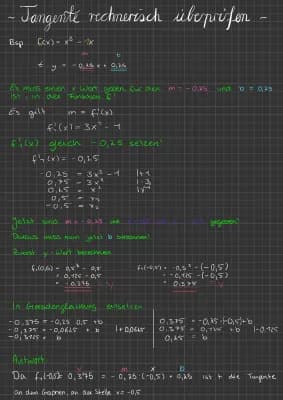 ~ Tangente rechnerisch überprüfen ~
Bsp f(x) = x³ - 1x
m b
t: y = -0,25 x + 0,25
Es muss einen x Wert geben für den m = -0,25 und b = 0,25
ist in der Funktion f.
Es gilt m = f'(x)
f'(x) = 3x² - 1
f'(x) gleich -0,25 setzen!
f'(x) = -0,25
-0,25 = 3x² - 1 |+1
0,75 = 3x² |:3
0,25 = x² |√
0,5 = x₁
-0,5 = x₂
Jetzt sind m = -0,25 gegeben!
Daraus kann man jetzt b berechnen!
Zuerst y-Wert berechnen
f(0,5) = 0,5³ - 0,5
= 0,125 - 0,5
= -0,375
f(-0,5) = -0,5³ - (-0,5)
= -0,125 - (-0,5)
= 0,375
In Geradengleichung einsetzen
-0,375 = -0,25 · 0,5 + b
0,375 = -0,25 · (-0,5) + b
0,375 = 0,125 + b |-0,125
0,25 = b
Antwort
y m x b
Da f(-0,5) = 0,375 = -0,25 · (-0,5) + 0,25 ist t die Tangente
an dem Graphen, an der Stelle x = -0,5